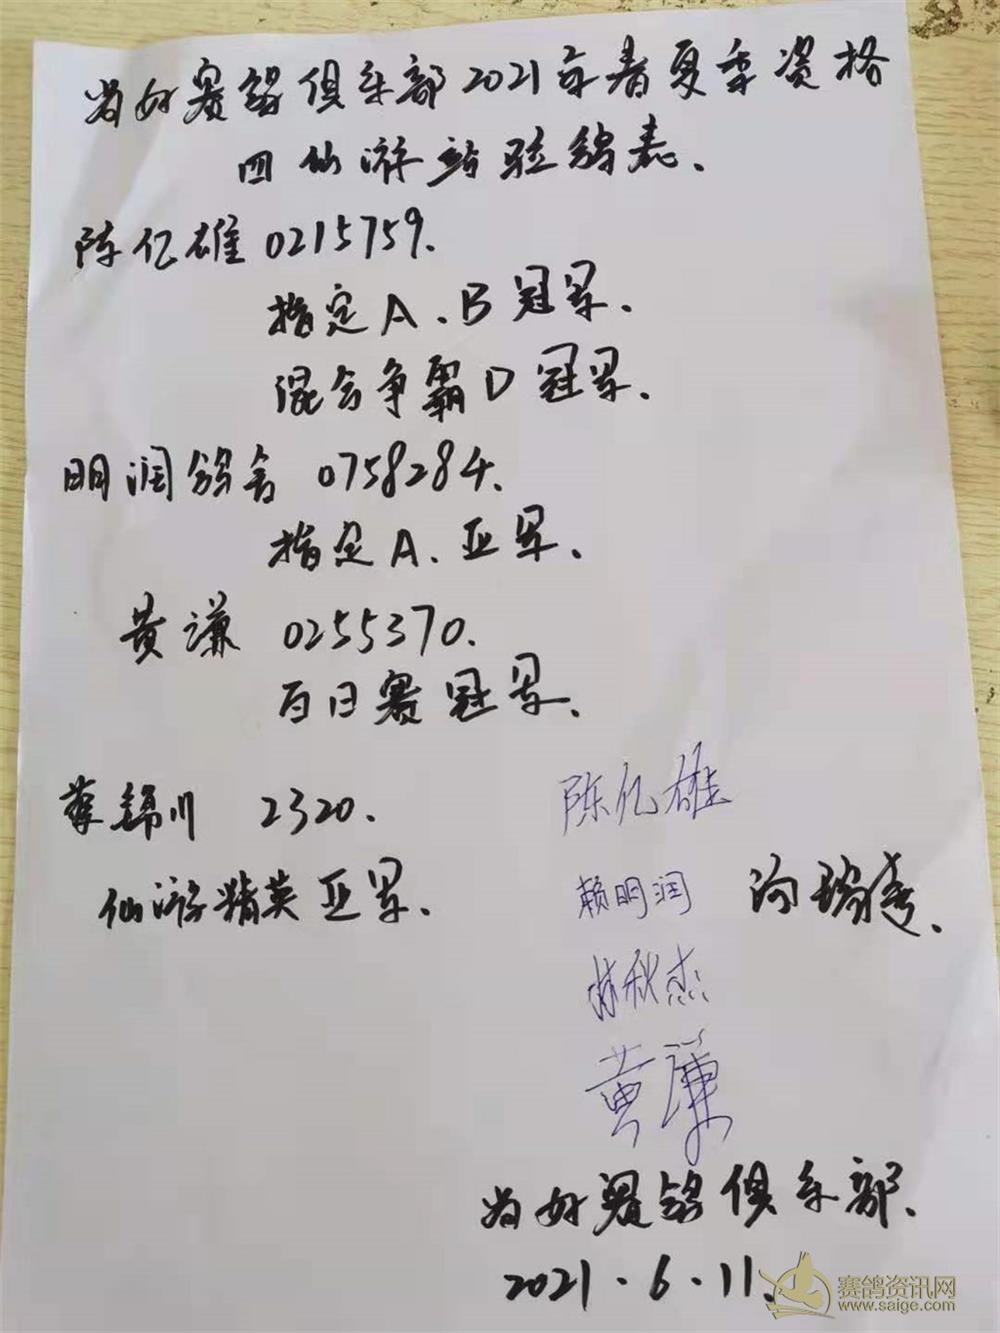 尚好赛鸽俱乐部2021年春夏季资格
四仙游站验鸽表.
陈亿雄 0215759.
指定A、B冠军.
混合争霸D冠军.
明润鸽舍 0758284.
指定A.亚军.
黄谦 0255370.
百日赛冠军.
蔡锦川 2320.
仙游精英亚军.
陈亿雄
赖明润
林秋杰
黄谦
尚好赛鸽俱乐部.
2021.6.11.
赛鸽资讯网
www.saige.com